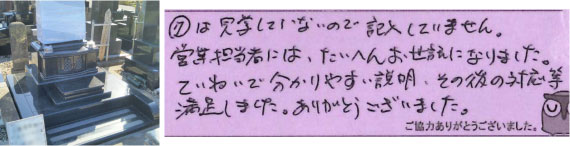 ⑦は見学していないので記入していません。
営業担当者には、たいへんお世話になりました。
ていねいで分かりやすい説明、その後の対応等
満足しました。ありがとうございました。
ご協力ありがとうございました。